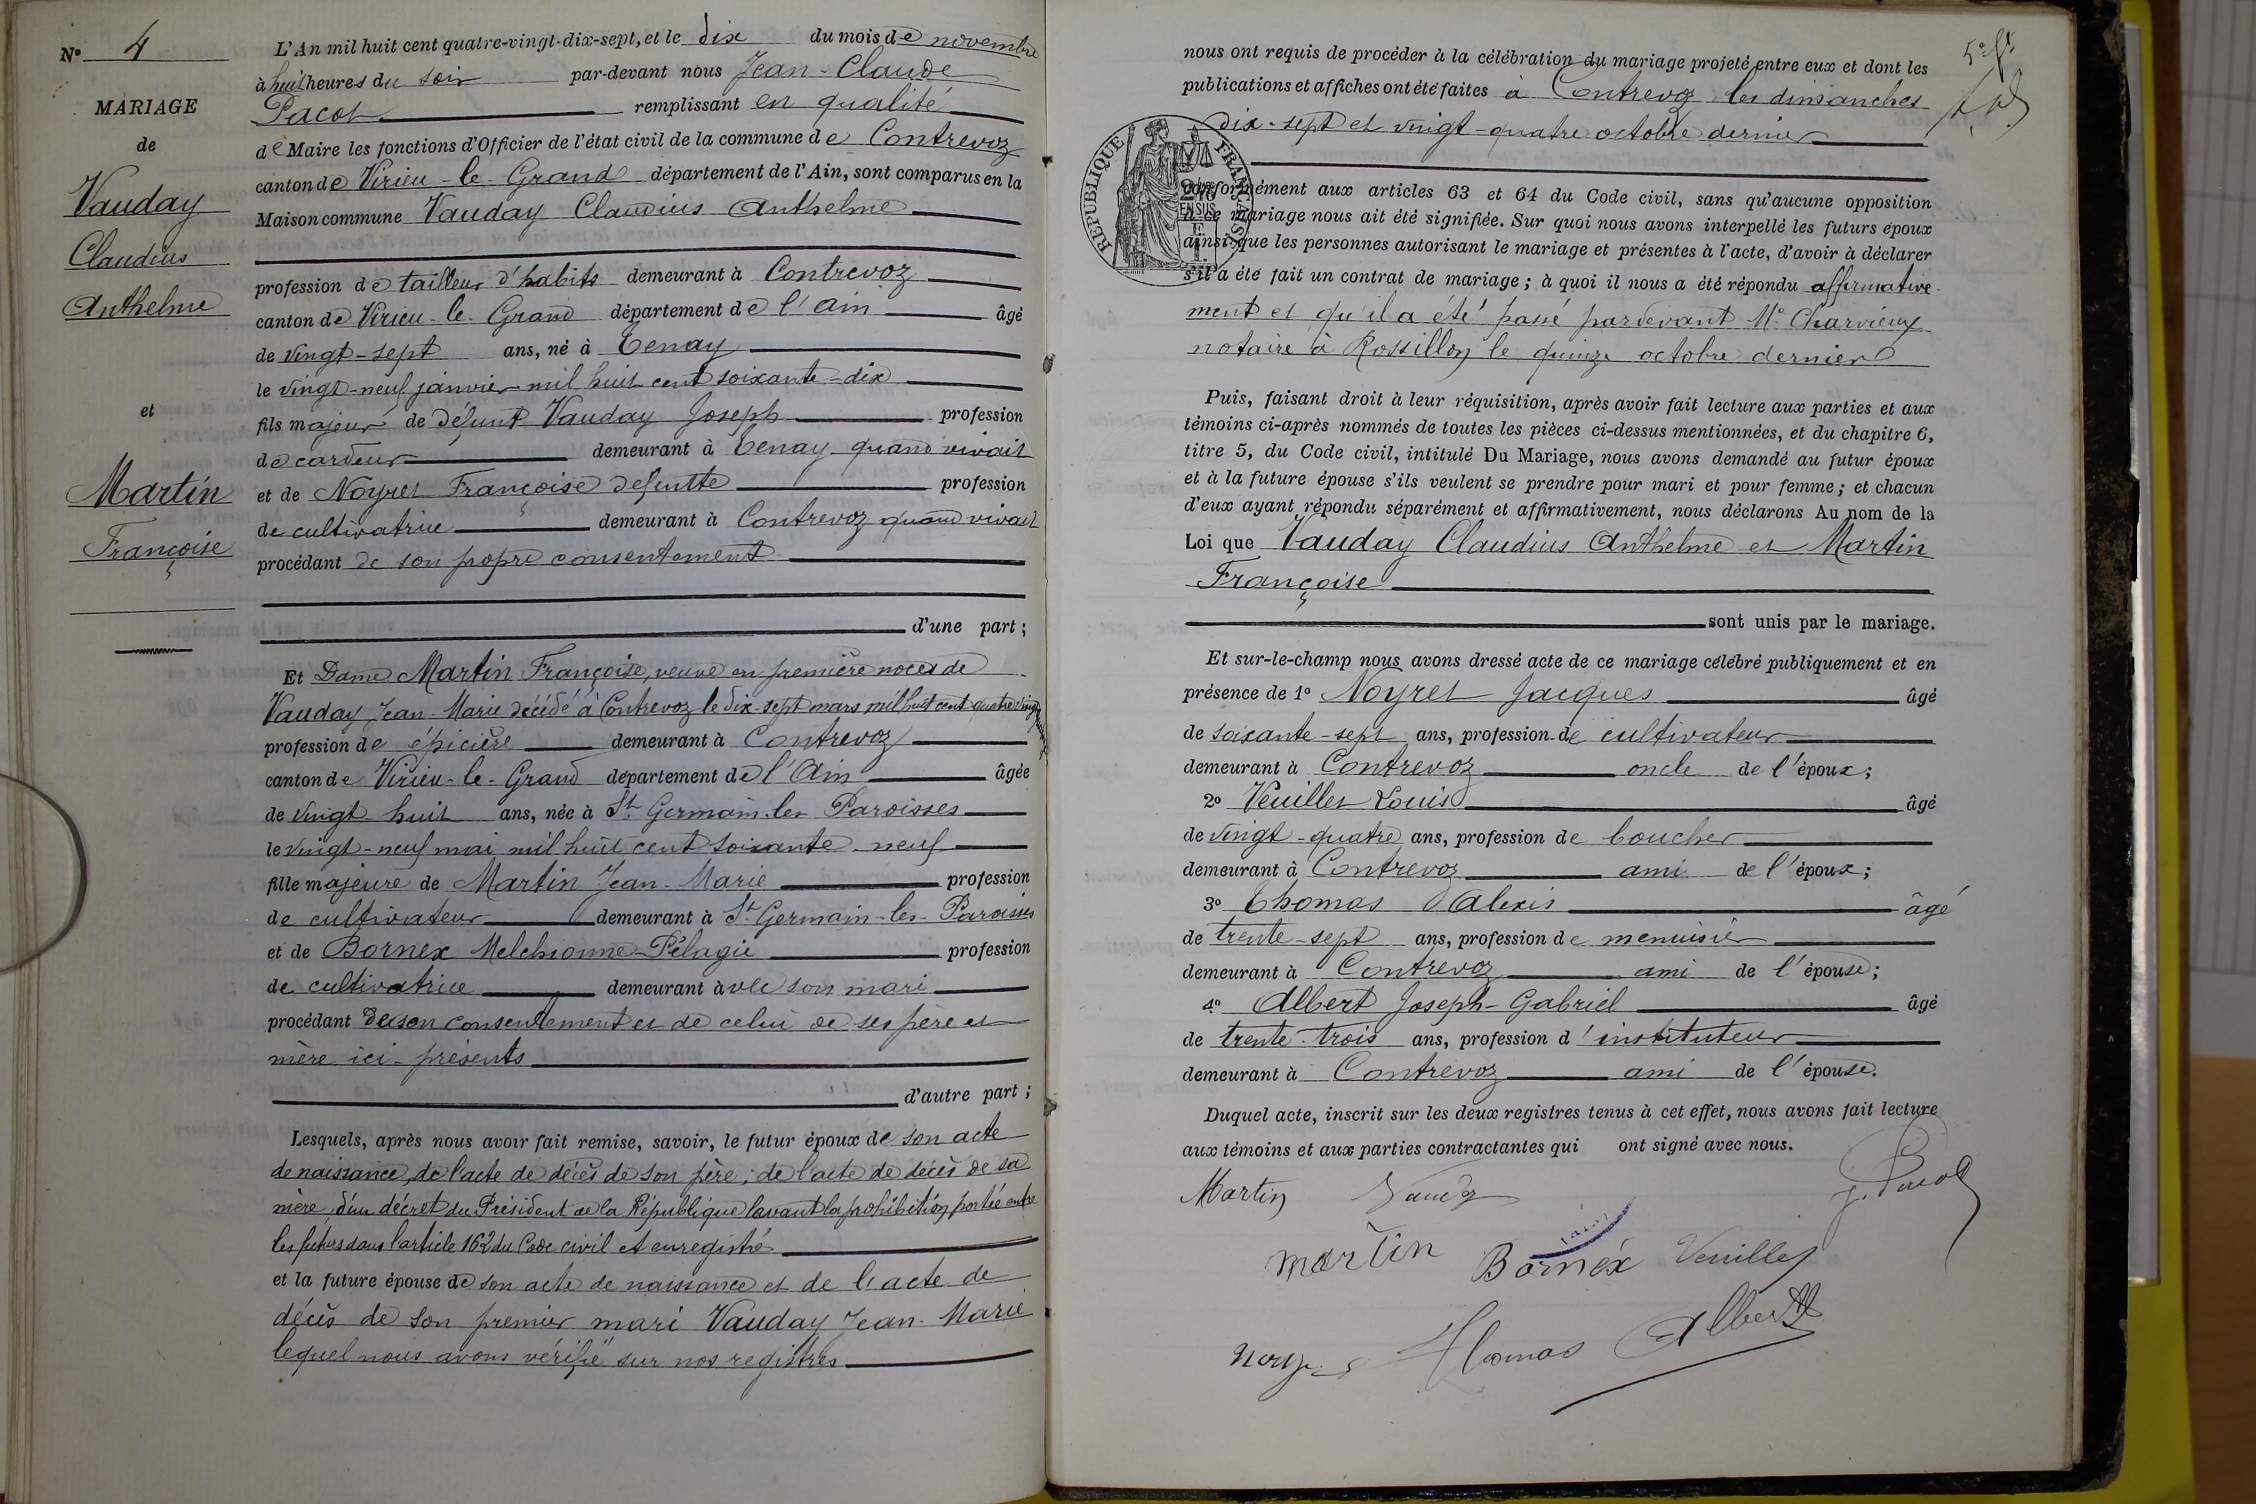 N° 4
MARIAGE
de
Vauday
Claudius
Anthelme
et
Martin
Françoise
L'An mil huit cent quatre-vingt-dix-sept, et le dix du mois de novembre
à huit heures du soir par-devant nous Jean-Claude
Pacot remplissant en qualité
de Maire les fonctions d'Officier de l'état civil de la commune de Contrevoz
canton de Virieu-le-Grand département de l'Ain, sont comparus en la
Maison commune Vauday Claudius Anthelme
profession de tailleur d'habits demeurant à Contrevoz
canton de Virieu-le-Grand département de l'Ain âgé
de vingt-sept ans, né à Tenay
le vingt-neuf janvier mil huit cent soixante-dix
fils majeur de défunt Vauday Joseph profession
de cardeur demeurant à Tenay quand vivait
et de Noyret Françoise defuntte profession
de cultivatrice demeurant à Contrevoz quand vivait
procédant de son propre consentement
d'une part ;
Et Dame Martin Françoise, veuve en première noces de
Vauday Jean-Marie décédé à Contrevoz le dix-sept mars mil huit cent quatre vingt
profession de épicière demeurant à Contrevoz
canton de Virieu-le-Grand département de l'Ain âgée
de vingt huit ans, née à St Germain-les Paroisses
le vingt-neuf mai mil huit cent soixante-neuf
fille majeure de Martin Jean-Marie profession
de cultivateur demeurant à St Germain-les-Paroisses
et de Bornex Melchionne-Pélagie profession
de cultivatrice demeurant à vec son mari
procédant de son consentement et de celui de ses père et
mère ici-présents
d'autre part ;
Lesquels, après nous avoir fait remise, savoir, le futur époux de son acte
de naissance, de l'acte de décès de son père ; de l'acte de décès de sa
mère d'un décret du Président de la République levant la prohibition portée entre
les futurs dans l'article 162 du Code civil et enregistré
et la future épouse de son acte de naissance et de l'acte de
décès de son premier mari Vauday Jean-Marie
lequel nous avons vérifié sur nos registres
nous ont requis de procéder à la célébration du mariage projeté entre eux et dont les
publications et affiches ont été faites à Contrevoz les dimanches
dix-sept et vingt-quatre octobre dernier
RÉPUBLIQUE FRANÇAISE
conformément aux articles 63 et 64 du Code civil, sans qu'aucune opposition
à ce mariage nous ait été signifiée. Sur quoi nous avons interpellé les futurs époux
ainsi que les personnes autorisant le mariage et présentes à l'acte, d'avoir à déclarer
s'il a été fait un contrat de mariage ; à quoi il nous a été répondu affirmative-
ment et qu'il a été passé pardevant Me Charvieux
notaire à Rossillon le quinze octobre dernier
Puis, faisant droit à leur réquisition, après avoir fait lecture aux parties et aux
témoins ci-après nommés de toutes les pièces ci-dessus mentionnées, et du chapitre 6,
titre 5, du Code civil, intitulé Du Mariage, nous avons demandé au futur époux
et à la future épouse s'ils veulent se prendre pour mari et pour femme ; et chacun
d'eux ayant répondu séparément et affirmativement, nous déclarons Au nom de la
Loi que Vauday Claudius Anthelme et Martin
Françoise
sont unis par le mariage.
Et sur-le-champ nous avons dressé acte de ce mariage célébré publiquement et en
présence de 1° Noyret Jacques âgé
de soixante-sept ans, profession de cultivateur
demeurant à Contrevoz oncle de l'époux ;
2° Veuillet Louis âgé
de vingt-quatre ans, profession de boucher
demeurant à Contrevoz ami de l'époux ;
3° Thomas Alexis âgé
de trente-sept ans, profession de menuisier
demeurant à Contrevoz ami de l'épouse ;
4° Albert Joseph-Gabriel âgé
de trente-trois ans, profession d'instituteur
demeurant à Contrevoz ami de l'épouse.
Duquel acte, inscrit sur les deux registres tenus à cet effet, nous avons fait lecture
aux témoins et aux parties contractantes qui ont signé avec nous.
Martin Vauday J. Pacot
Martin Bornex Veuillet
Thomas Albert